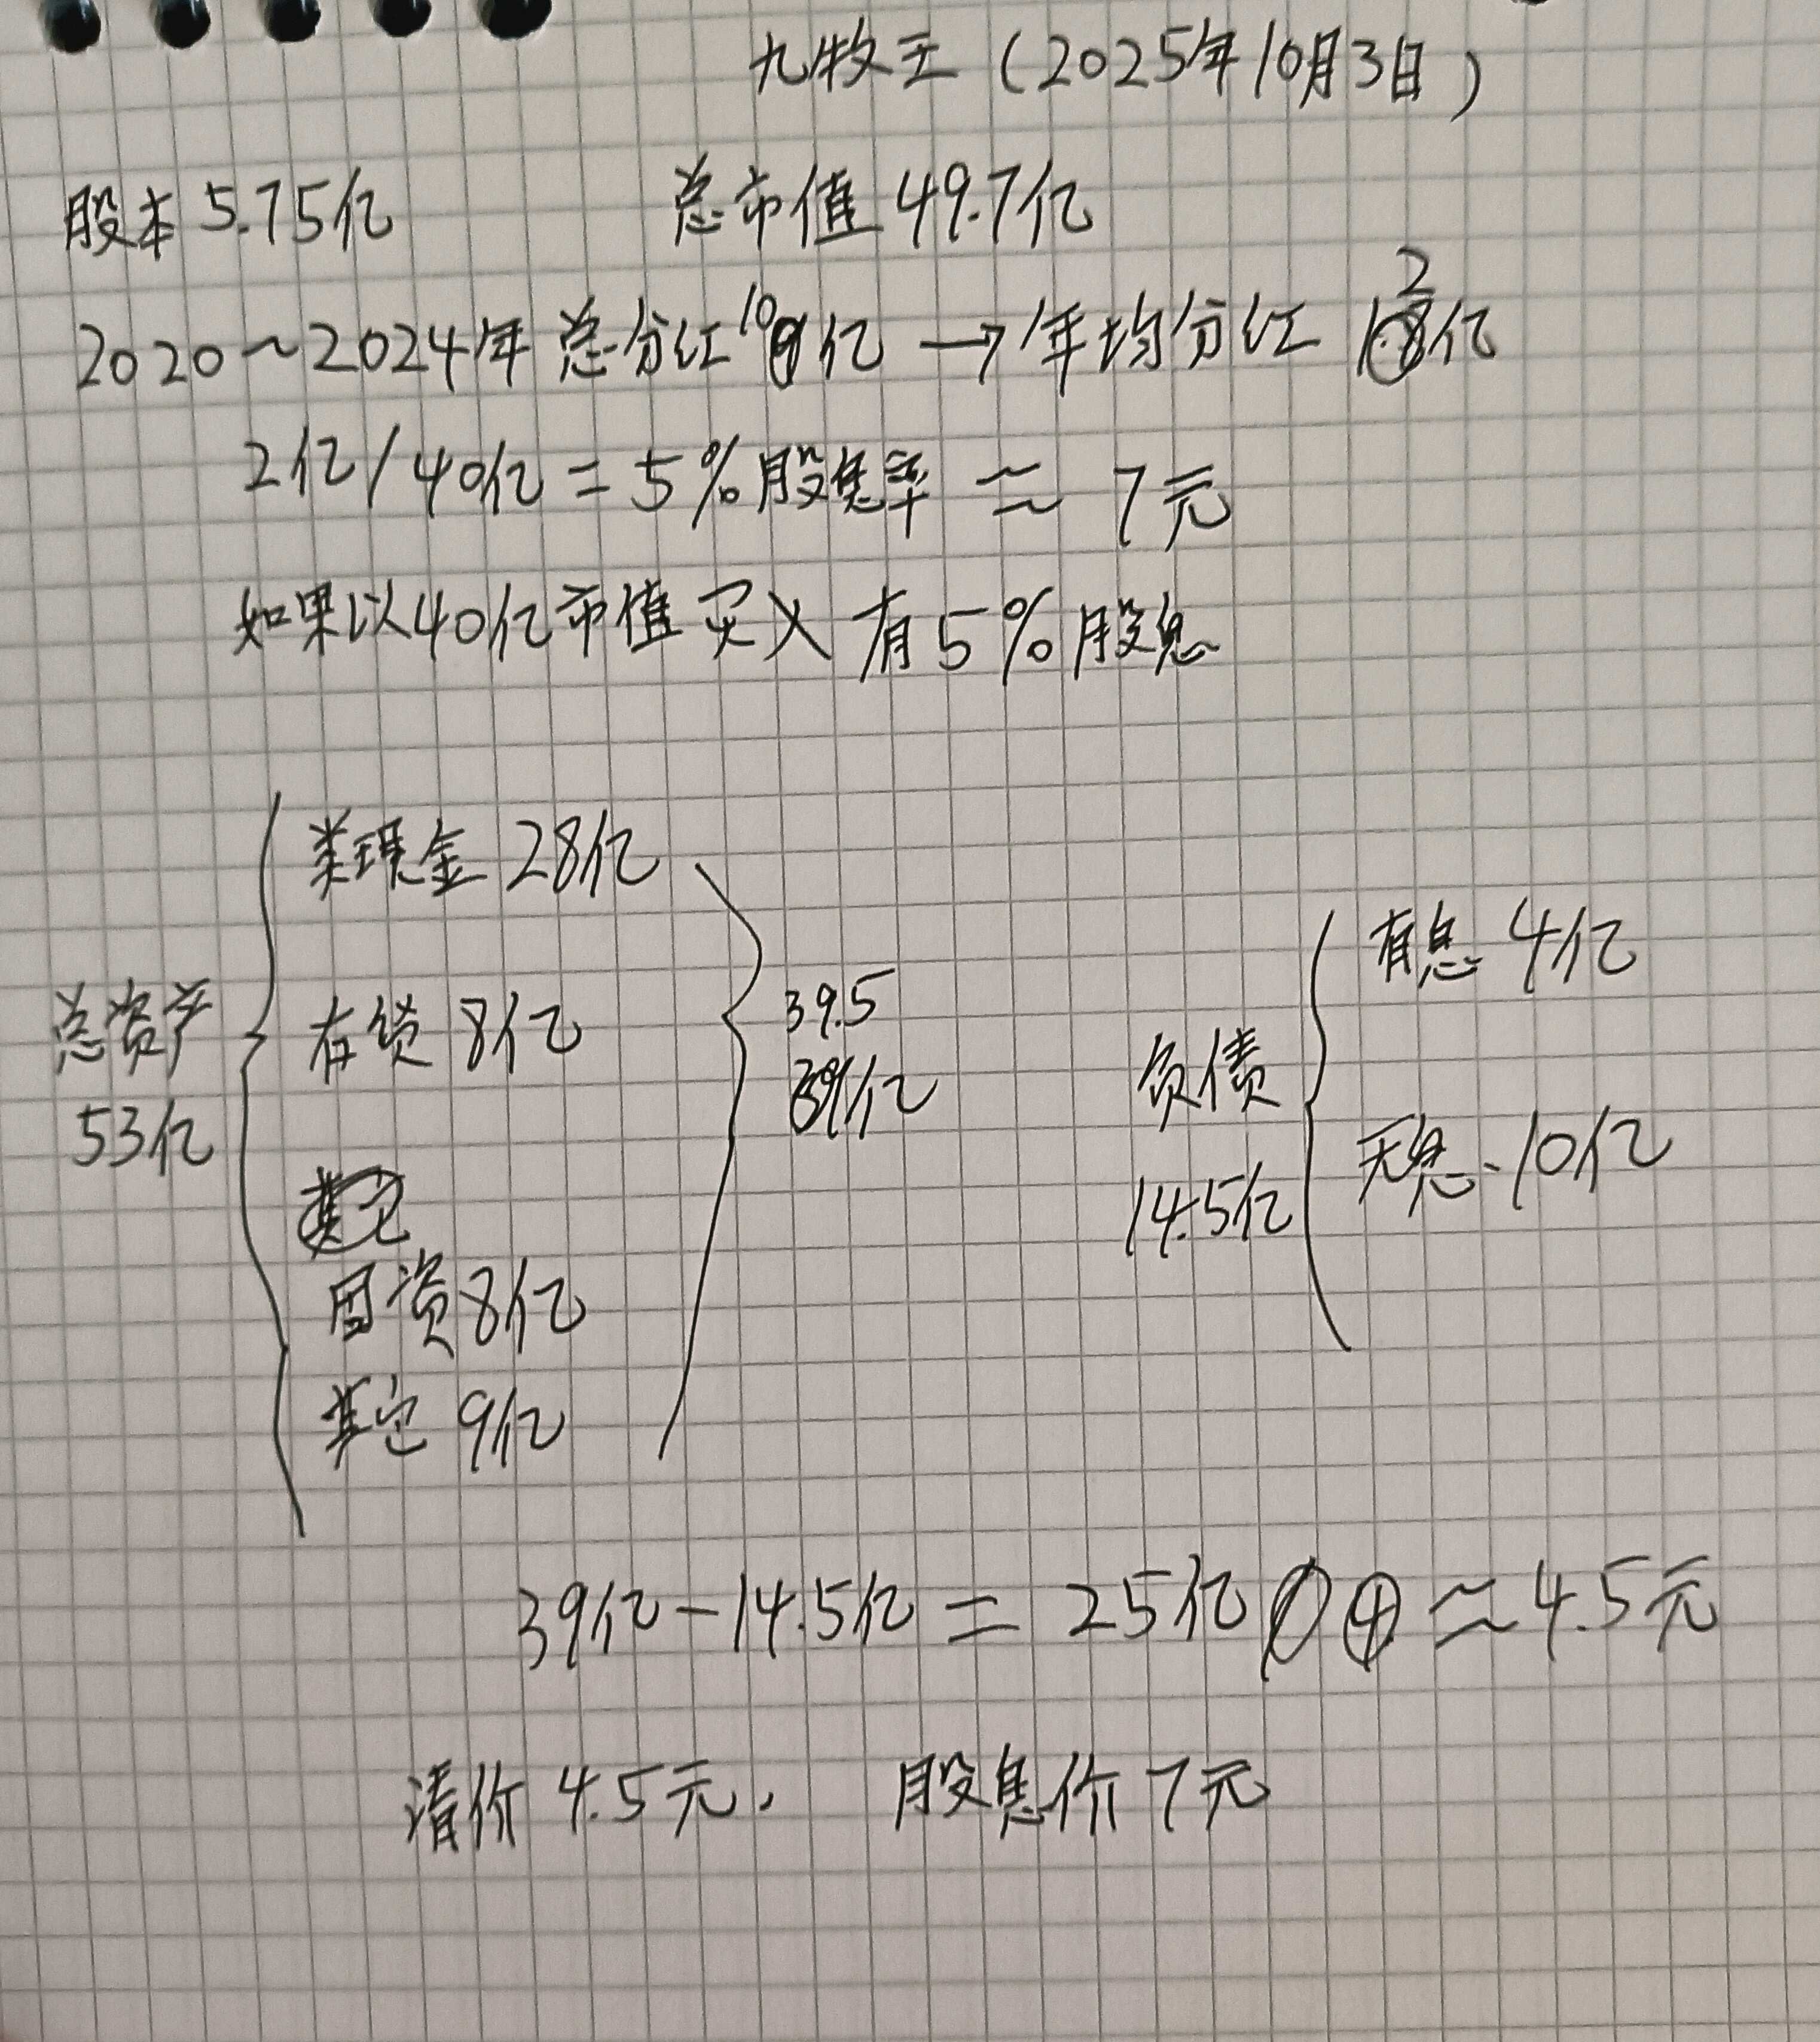 九牧王（2025年10月3日）
股本 5.75亿 总市值 49.7亿
2020~2024年总分红10亿 → 年均分红 2亿
2亿/40亿 = 5%股息率 ≈ 7元
如果以40亿市值买入有5%股息
总资产
53亿
类现金 28亿
存货 8亿
固资8亿
其它 9亿
39.5
39亿
负债
14.5亿
有息 4亿
无息 10亿
39亿-14.5亿 = 25亿 ≈ 4.5元
清价 4.5元, 股息价 7元